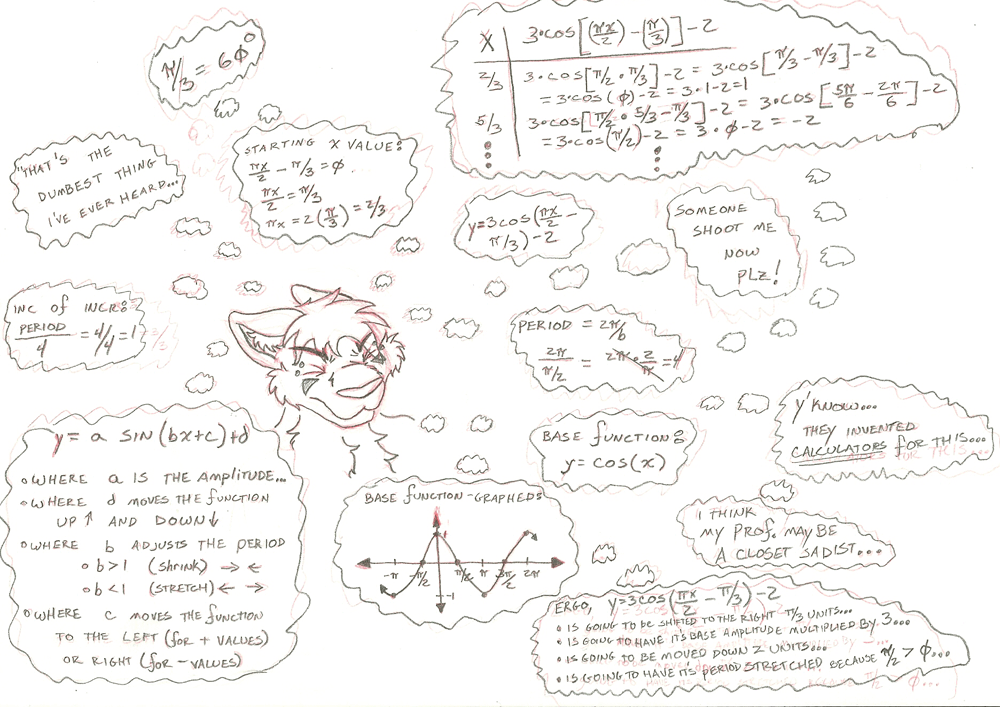 π/3 = 6Ø°
"THAT'S THE
DUMBEST THING
I'VE EVER HEARD...
STARTING X VALUE:
πx/2 - π/3 = Ø
πx/2 = π/3
πx = 2(π/3) = 2/3
X | 3•cos[(πx/2) - (π/3)] - 2
2/3 | 3•cos[π/2 • π/3] - 2 = 3•cos[π/3 - π/3] - 2
= 3•cos(Ø) - 2 = 3•1-2=1
5/3 | 3•cos[π/2 • 5/3 - π/3] - 2 = 3•cos[5π/6 - 2π/6] - 2
= 3•cos(π/2) - 2 = 3•Ø-2 = -2
y=3cos(πx/2 -
π/3) - 2
SOMEONE
SHOOT ME
NOW
PLZ!
INC of INCR:
PERIOD/4 = 4/4 = 1
PERIOD = 2π/b
2π/π/2 = 2π • 2/π = 4
y = a SIN(bx+c)+d
• WHERE a IS THE AMPLITUDE...
• WHERE d MOVES THE FUNCTION
UP ↑ AND DOWN ↓
• WHERE b ADJUSTS THE PERIOD
• b>1 (SHRINK) → ←
• b<1 (STRETCH) ← →
• WHERE C MOVES THE FUNCTION
TO THE LEFT (FOR + VALUES)
OR RIGHT (FOR - VALUES)
BASE FUNCTION:
y = cos(x)
BASE FUNCTION-GRAPHED:
1
-π -π/2 π/2 π 3π/2 2π
-1
Y'KNOW...
THEY INVENTED
CALCULATORS FOR THIS...
I THINK
MY PROF. MAY BE
A CLOSET SADIST...
ERGO, y=3cos(πx/2 - π/3) - 2
• IS GOING TO BE SHIFTED TO THE RIGHT π/3 UNITS...
• IS GOING TO HAVE ITS BASE AMPLITUDE MULTIPLIED BY 3...
• IS GOING TO BE MOVED DOWN 2 UNITS...
• IS GOING TO HAVE IT'S PERIOD STRETCHED BECAUSE π/2 > Ø...